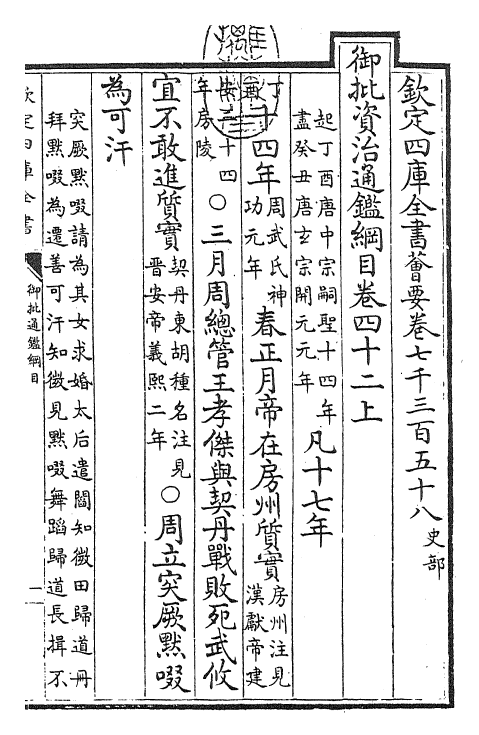 欽定四庫全書薈要卷七千三百五十八 史部
御批資治通鑑綱目卷四十二上
起丁酉唐中宗嗣聖十四年
盡癸丑唐玄宗開元元年
凡十七年
十四年
周武氏神
功元年
春正月帝在房州質實
房州注見
漢獻帝建
安二十四
年房陵
○三月周總管王孝傑與契丹戰敗死武攸
宜不敢進質實
契丹東胡種名注見
晉安帝義熙二年
○周立突厥黙啜
為可汗
突厥黙啜請為其女求婚太后遣閻知微田歸道冊
拜黙啜為遷善可汗知微見黙啜舞蹈歸道長揖不
欽定四庫全書
御批通鑑綱目
一